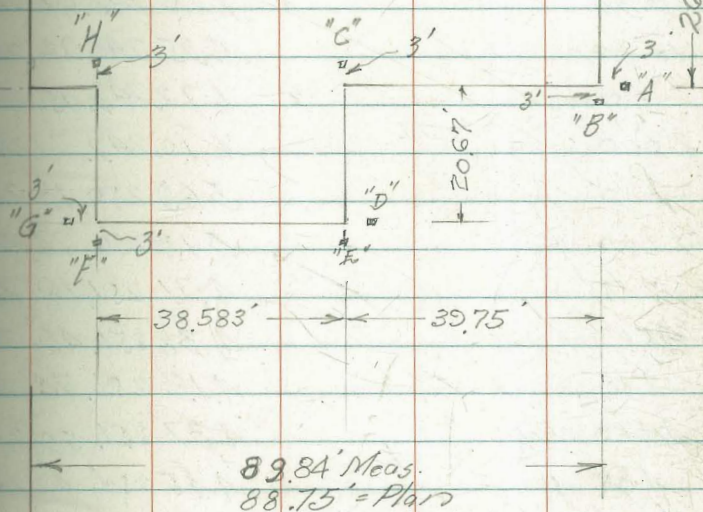 "H"
3'
"C"
3'
3'
"A"
3'
"B"
20.67'
3'
"G"
"D"
3'
"F"
"E"
38.583'
39.75'
89.84' Meas.
88.75' = Plan